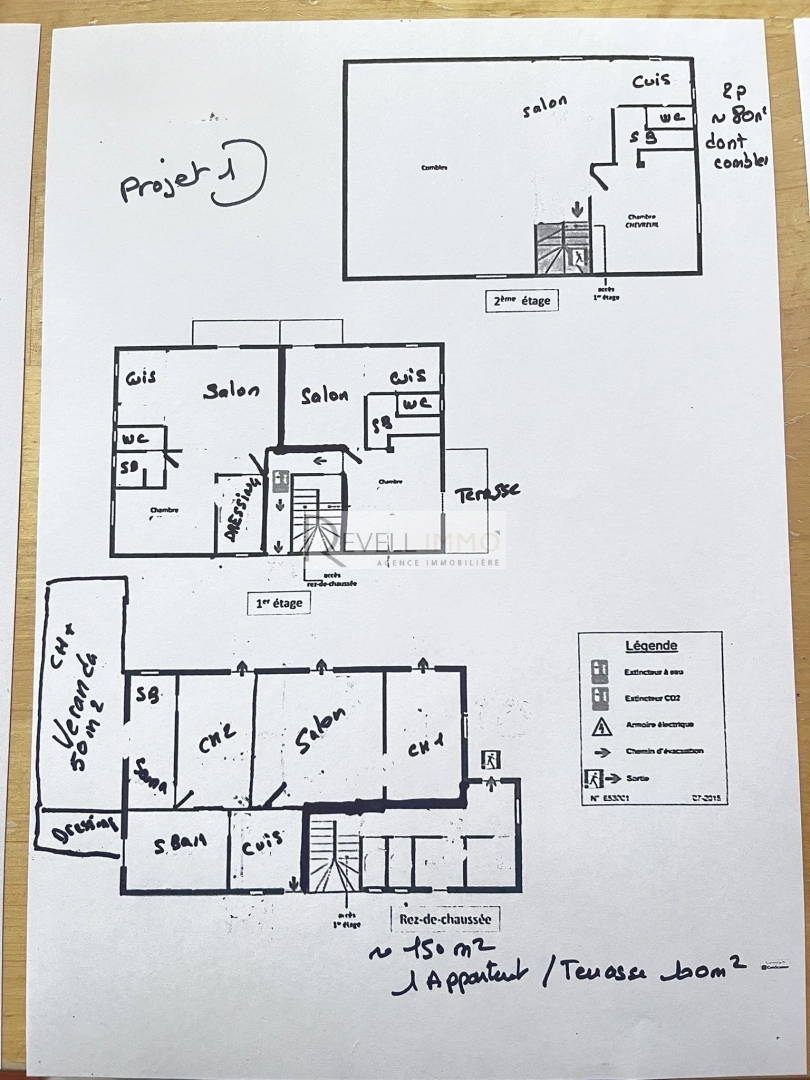 Projet 1
Cuis
salon
WC
SB
Combles
Chambre
CHEVREUIL
2P
~ 80m²
dont
combles
2ème étage
accès
1er étage
Cuis
Salon
Salon
Cuis
WC
SB
WC
SB
Chambre
DRESSING
Chambre
Terasse
REVELL IMMO
AGENCE IMMOBILIÈRE
accès
rez-de-chaussée
1er étage
CH +
Veranda
50 m2
SB
Sauna
CH2
Salon
CH1
Dressing
S Bain
Cuis
accès
1er étage
Rez-de-chaussée
~ 150 m2
Légende
Extincteur à eau
Extincteur CO2
Armoire électrique
Chemin d'évacuation
Sortie
N° E53001
07-2015
CamScanner